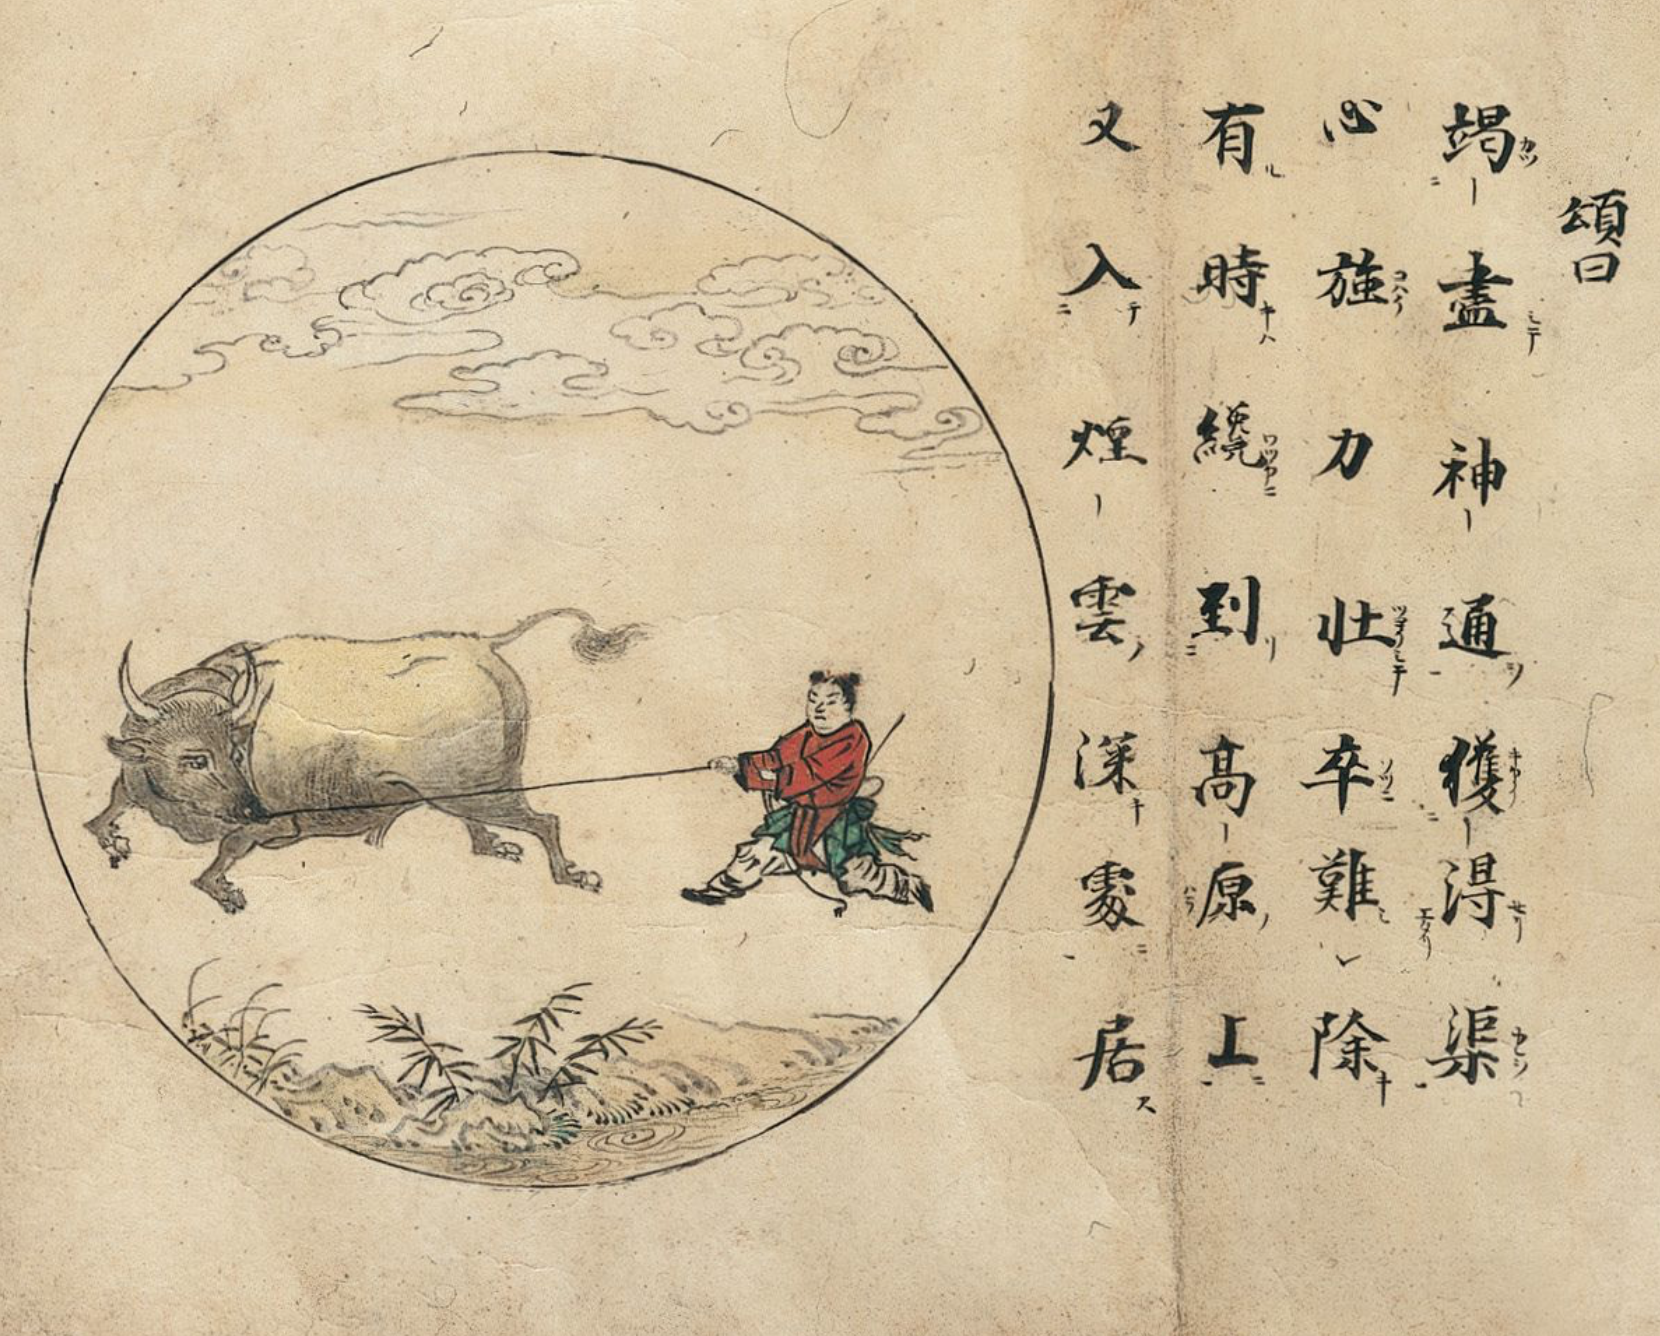 頌曰
竭盡神通獲得渠
心強力壯卒難除
有時纔到高原上
又入煙雲深處居